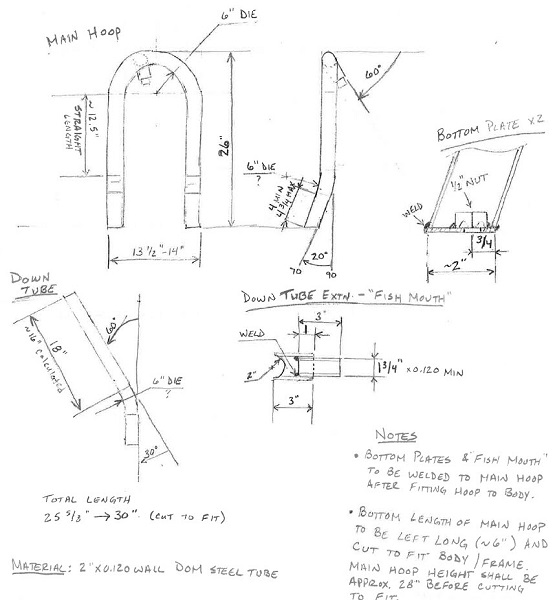 MAIN HOOP
6" DIE
60°
~ 12.5"
STRAIGHT
LENGTH
26"
6" DIE
?
4 MIN
4 3/4 MAX
13 1/2"-14"
20°
70
90
BOTTOM PLATE x2
1/2" NUT
WELD
3/4
~2"
DOWN
TUBE
60°
18"
~16" calculated
6" DIE
?
30°
DOWN TUBE EXTN. - "FISH MOUTH"
3"
WELD
1
2"
1 3/4" x 0.120 MIN
3"
TOTAL LENGTH
25 5/8" → 30" (CUT TO FIT)
MATERIAL: 2" x 0.120 WALL DOM STEEL TUBE
NOTES
• BOTTOM PLATES & "FISH MOUTH"
TO BE WELDED TO MAIN HOOP
AFTER FITTING HOOP TO BODY.
• BOTTOM LENGTH OF MAIN HOOP
TO BE LEFT LONG (~6") AND
CUT TO FIT BODY/FRAME.
MAIN HOOP HEIGHT SHALL BE
APPROX. 28" BEFORE CUTTING
TO FIT.